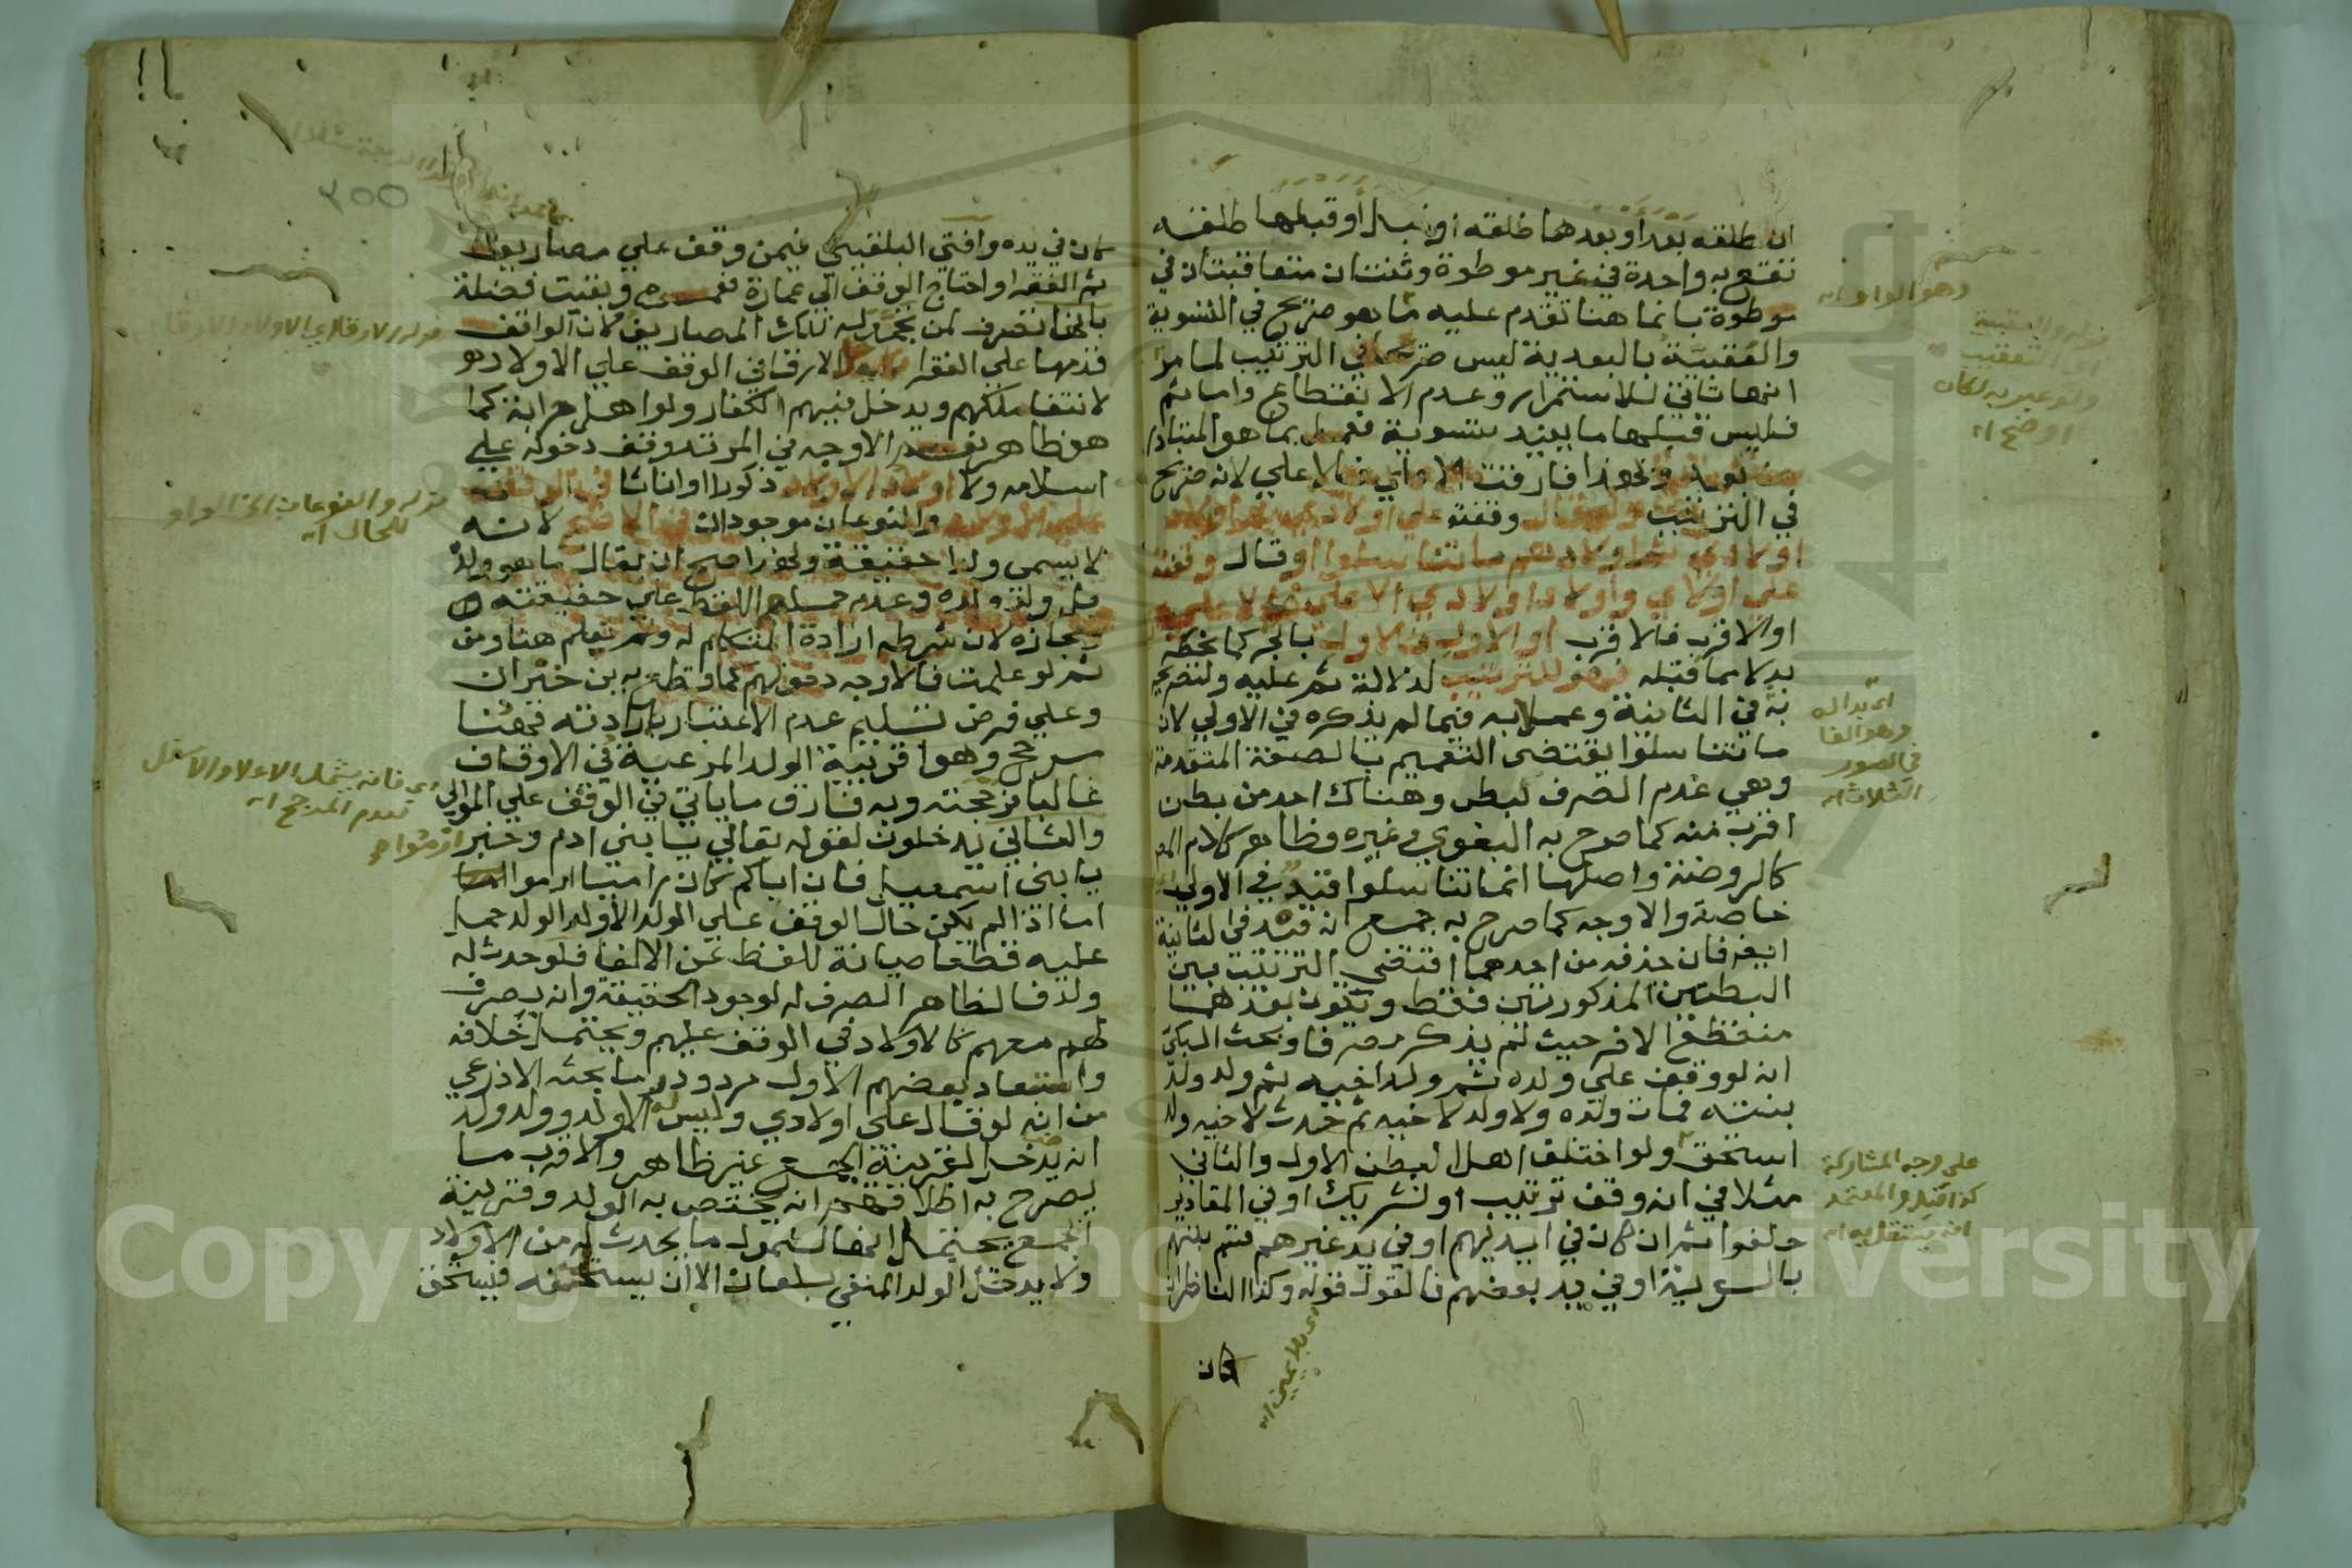 ان طلقه بعد أو بعدها طلقه او قبل أو قبلها طلقه
تقع به واحدة في غير موطوة وثنتان متعاقبتان في
موطوة بانما هنا تقدم عليه ما هو صريح في التسوية
والعقبية بالبعدية ليس صريحا في الترتيب لما مر
انها تاتي للاستمرار وعدم الانقطاع واما ثم
فليس قبلها ما يفيد تسوية فعمل بما هو المتبادر
الاعلي لانه صريح
في الترتيب ولو قال وقفته علي اولادي ثم اولاد
اولادي ثم اولادهم ما تناسلوا او قال وقفته
علي اولادي واولاد اولادي الاعلي فالاعلي
او الاقرب فالاقرب او الاول فالاول بالجر كما بخطه
بدلا مما قبله فهو للترتيب لدلالة ثم عليه ولتصريحه
به في الثانية وعملا به فيما لم يذكره في الاولي لان
ما تناسلوا يقتضي التعميم بالصفة المتقدمة
وهي عدم الصرف لبطن وهناك احد من بطن
اقرب منه كما صرح به البغوي وغيره وظاهر كلام
كالروضة واصلها ان ما تناسلوا قيد في الاولي
خاصة والاوجه كما صرح به جمع انه قيد في الثانية
ايضا فان حذفه من احدهما اقتضي الترتيب بين
البطنين المذكورين فقط ويكون بعدهما
منقطع الاخر حيث لم يذكر مصرفا وبحث السبكي
انه لو وقف علي ولده ثم ولد اخيه ثم ولد ولد
بنته فمات ولده ولا ولد لاخيه ثم حدث لاخيه ولد
استحق ولو اختلف اهل البطن الاول والثاني
مثلا في انه وقف ترتيب او تشريك او في المقادير
حلفوا ثم ان كان في ايديهم او في يد غيرهم قسم بينهم
بالسوية او في يد بعضهم فالقول قوله وكذا الناظر ان
كان
اي بلا يمين اه
وهو الواو اه
ولو عبر به لكان
اوضح اه
اي بدله
وهو الفا
في الصور
الثلاث اه
علي وجه المشاركة
كذا قيل والمعتمد
انه ينتقل به اه
٢٥٥
كان في يده وافتي البلقيني فيمن وقف علي مصاريف
ثم الفقرا واحتاج الوقف الي عمارة فعمر وبقيت فضلة
بانها تصرف لمن تجمد له تلك المصاريف لان الواقف
قدمها علي الفقرا ولا يدخل الارقا في الوقف علي الاولاد
لانتفا ملكهم ويدخل فيهم الكفار ولو اهل حرابة كما
هو ظاهر نعم الاوجه في المرتد وقف دخوله علي
اسلامه ولا اولاد الاولاد ذكورا او اناثا في الوقف
علي الاولاد والنوعان موجودان في الاصح لانه
لا يسمي ولدا حقيقة ولهذا صح ان يقال ما هو ولده
بل ولد ولده وعدم حمل اللفظ علي حقيقته
ومجازه لان شرطه ارادة المتكلم له ولم تعلم هنا ومن
ثم لو علمت فالاوجه دخولهم كما قطع به بن خيران
وعلي فرض تسليم عدم الاعتبار بارادته فهنا
مرجح وهو اقربية الولد المرعية في الاوقاف
غالبا فرجحته وبه فارق ما ياتي في الوقف علي الموالي
والثاني يدخلون لقوله تعالي يا بني ادم وخبر ارموا
يا بني اسمعيل فان اباكم كان راميا
اما اذا لم يكن حال الوقف علي الولد الا ولد الولد حمل
عليه قطعا صيانة للفظ عن الالغا فلو حدث له
ولد فالظاهر الصرف له لوجود الحقيقة وانه يصرف
لهم معهم كالاولاد في الوقف عليهم ويحتمل خلافه
واستبعاد بعضهم الاول مردود وما بحثه الاذرعي
من انه لو قال علي اولادي وليس له الا ولد وولد ولد
انه يدخل لقرينة الجمع غير ظاهر والاقرب ما
يصرح به اطلاقهم انه يختص به الولد وقرينة
الجمع يحتمل انها لشمول ما يحدث له من الاولاد
ولا يدخل الولد المنفي بلعان الا ان يستلحقه فيستحق
قوله والنوعان الخ الواو
للحال اه
اي فانه يشمل الاعلا والاسفل
لعدم المرجح اه
Copyright © King Saud University